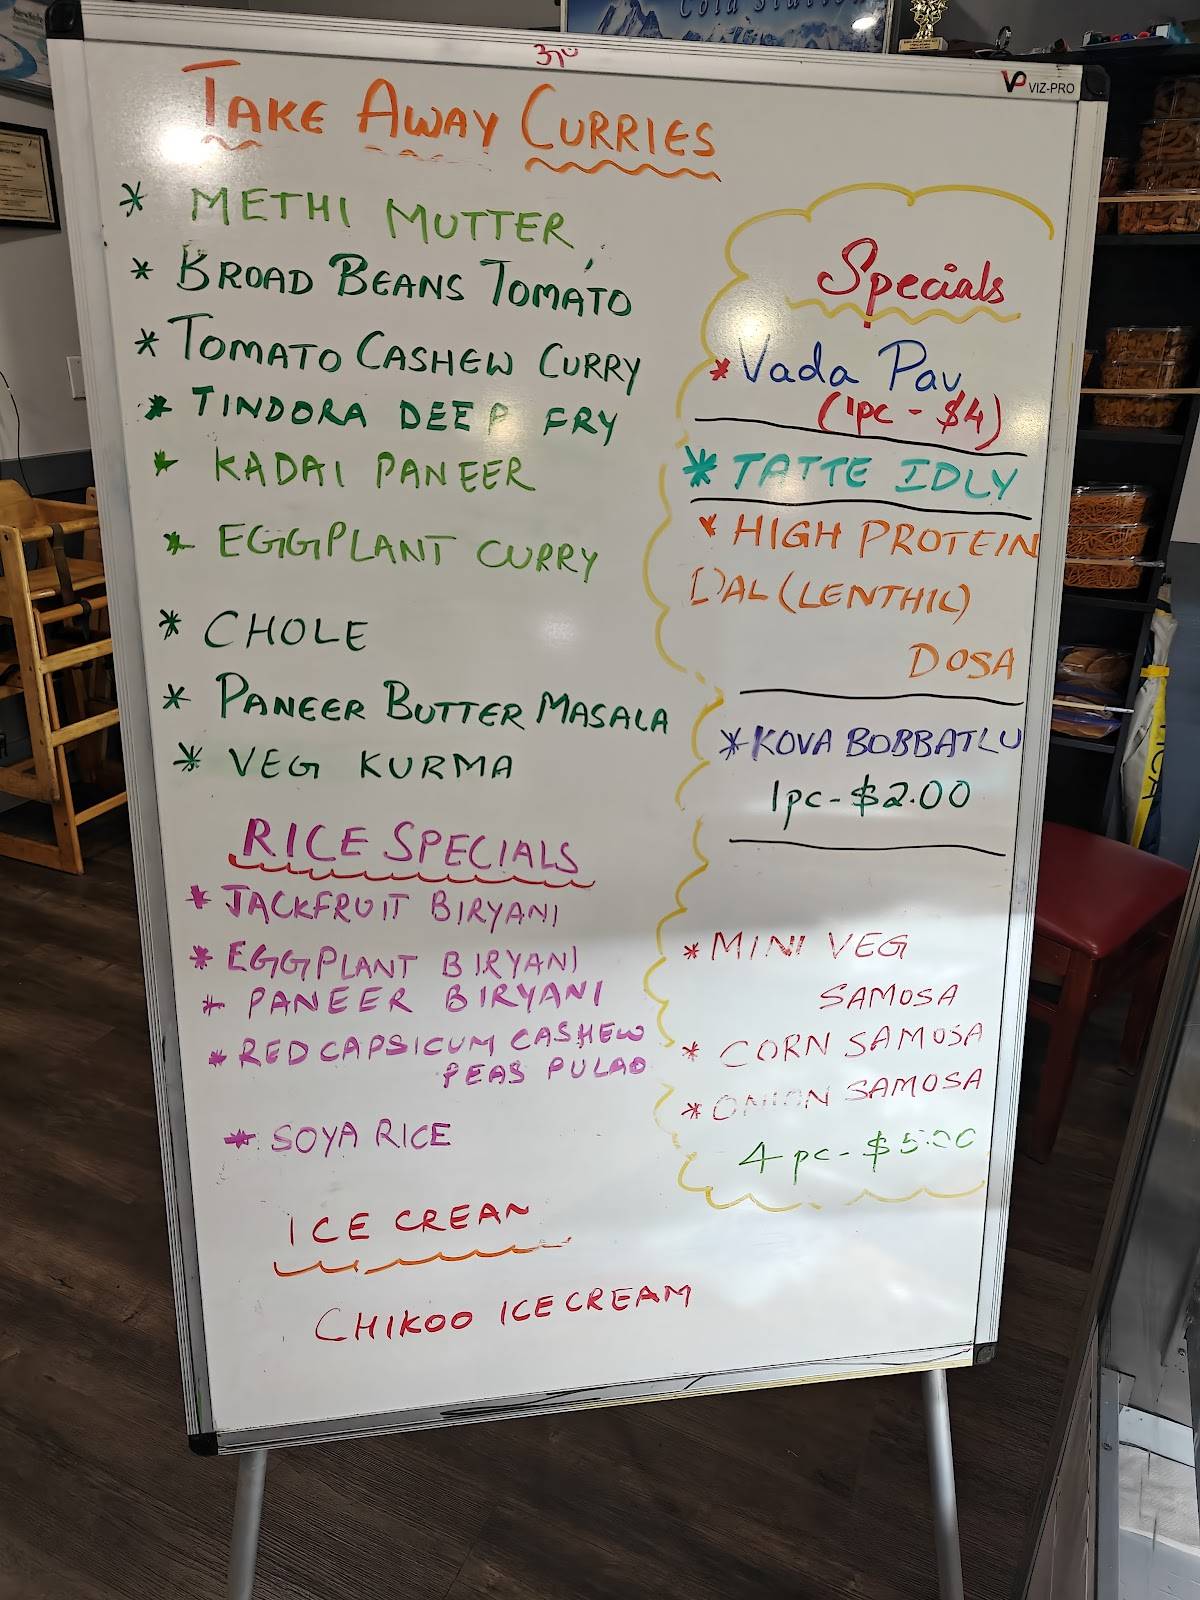 VP VIZ-PRO
TAKE AWAY CURRIES
* METHI MUTTER
* BROAD BEANS TOMATO
* TOMATO CASHEW CURRY
* TINDORA DEEP FRY
* KADAI PANEER
* EGGPLANT CURRY
* CHOLE
* PANEER BUTTER MASALA
* VEG KURMA
RICE SPECIALS
* JACKFRUIT BIRYANI
* EGGPLANT BIRYANI
* PANEER BIRYANI
* RED CAPSICUM CASHEW
PEAS PULAO
* SOYA RICE
ICE CREAM
CHIKOO ICE CREAM
Specials
* Vada Pav
(1pc - $4)
* TATTE IDLY
* HIGH PROTEIN
DAL (LENTHIL)
DOSA
* KOVA BOBBATLU
1pc - $2.00
* MINI VEG
SAMOSA
* CORN SAMOSA
* ONION SAMOSA
4 pc - $5.00